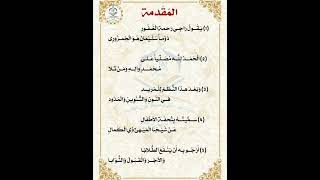 المُقدمة
(1) يَقُولُ رَاجِي رَحمَةِ الغَفُورِ
دَوْمًا سُلَيْمَانُ هُوَ الجَمْزُورِى
(2) الْحَمْدُ لِلَّهِ مُصَلِّيًا عَلَى
مُحَمَّدٍ وَآلِهِ وَمَنْ تَلَا
(3) وَبَعْدُ هَذَا النَّظْمُ لِلْمُرِيدِ
فِي النُّونِ وَالتَّنْوِينِ وَالْمُدُودِ
(4) سَمَّيْتُهُ بِتُحْفَةِ الأَطْفَالِ
عَنْ شَيْخِنَا الْمِيهِيِّ ذِي الْكَمَالِ
(5) أَرْجُو بِهِ أَنْ يَنْفَعَ الطُّلَّابَا
وَالأَجْرَ وَالْقَبُولَ وَالثَّوَابَا